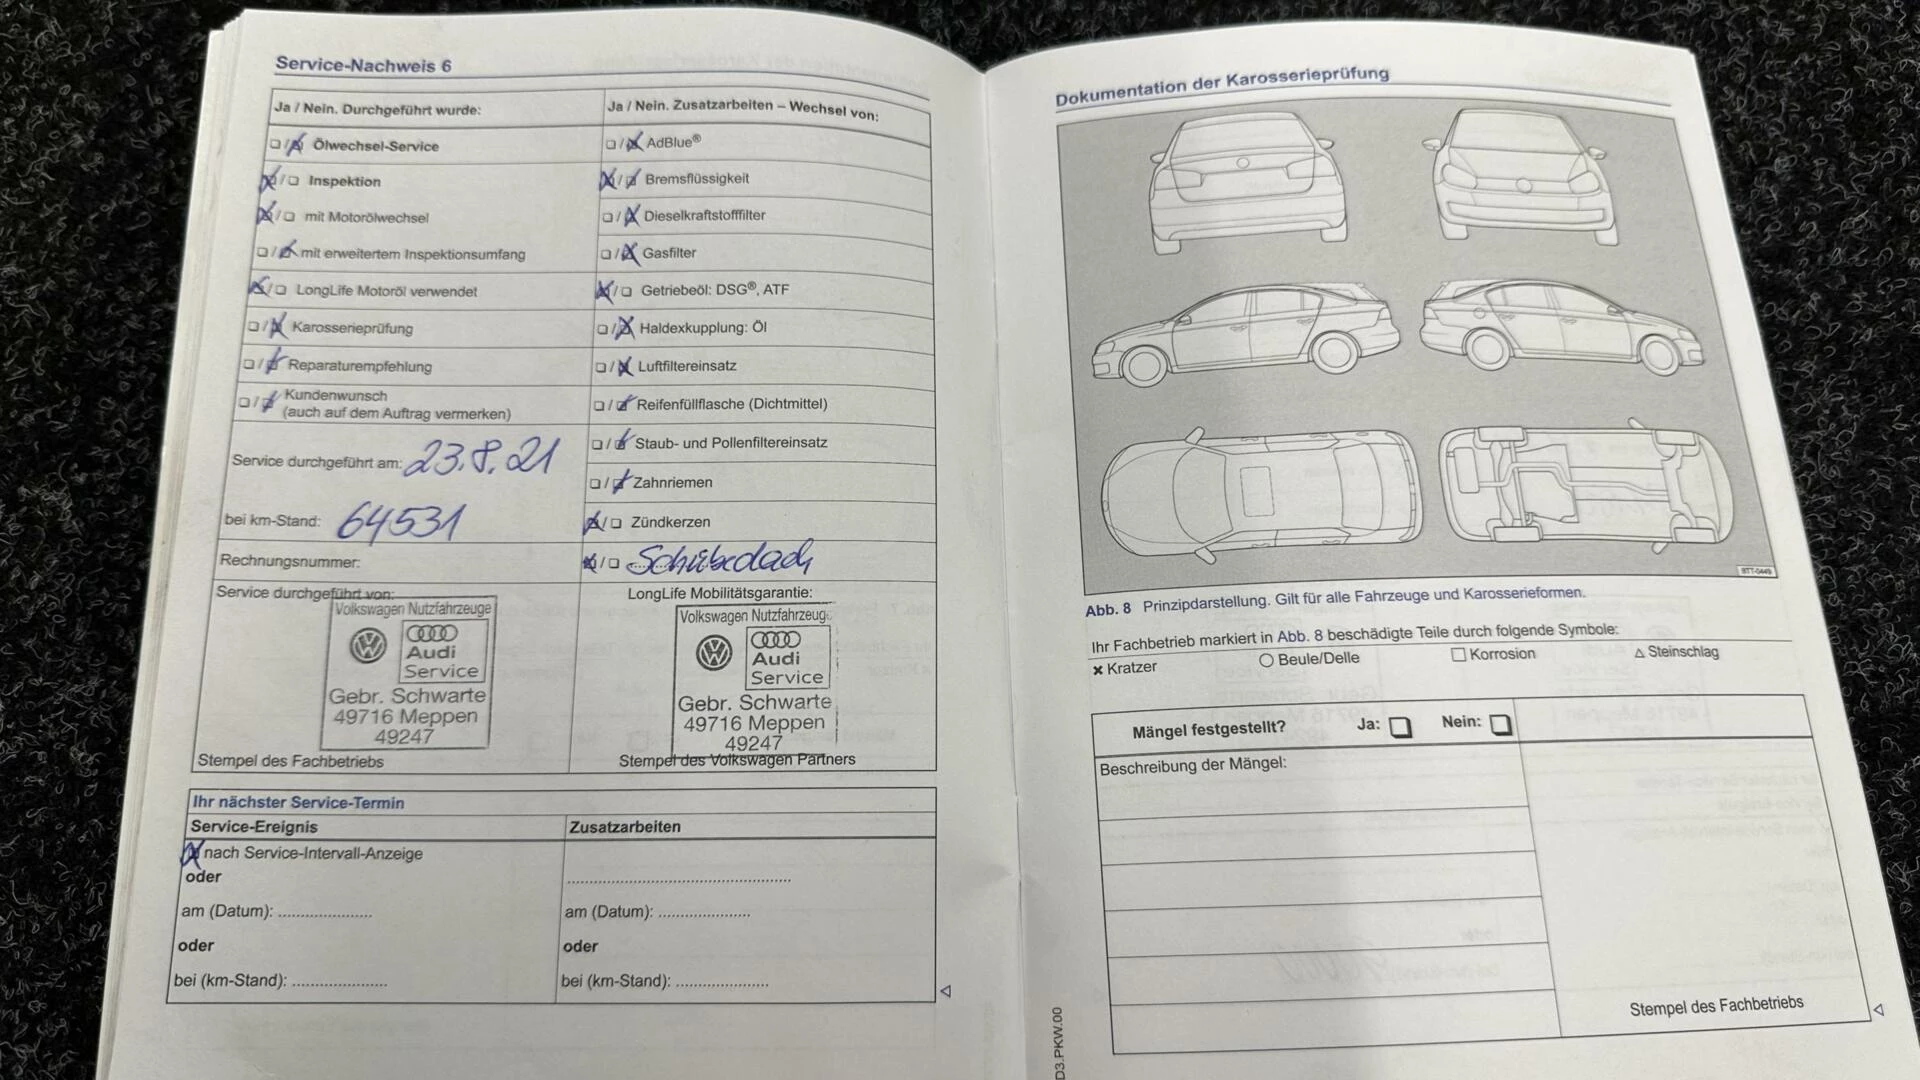 Service-Nachweis 6
Ja / Nein. Durchgeführt wurde:
Ölwechsel-Service
Inspektion
mit Motorölwechsel
mit erweitertem Inspektionsumfang
LongLife Motoröl verwendet
Karosserieprüfung
Reparaturempfehlung
Kundenwunsch
(auch auf dem Auftrag vermerken)
Service durchgeführt am: 23.8.21
bei km-Stand: 64531
Rechnungsnummer:
Service durchgeführt von:
Volkswagen Nutzfahrzeuge
Audi
Service
Gebr. Schwarte
49716 Meppen
49247
Stempel des Fachbetriebs
Ja / Nein. Zusatzarbeiten – Wechsel von:
AdBlue®
Bremsflüssigkeit
Dieselkraftstofffilter
Gasfilter
Getriebeöl: DSG®, ATF
Haldexkupplung: Öl
Luftfiltereinsatz
Reifenfüllflasche (Dichtmittel)
Staub- und Pollenfiltereinsatz
Zahnriemen
Zündkerzen
Schiebedach
LongLife Mobilitätsgarantie:
Volkswagen Nutzfahrzeug
Audi
Service
Gebr. Schwarte
49716 Meppen
49247
Stempel des Volkswagen Partners
Ihr nächster Service-Termin
Service-Ereignis
nach Service-Intervall-Anzeige
oder
am (Datum): ......................
oder
bei (km-Stand): ......................
Zusatzarbeiten
am (Datum): ......................
oder
bei (km-Stand): ......................
Dokumentation der Karosserieprüfung
BTT-0449
Abb. 8 Prinzipdarstellung. Gilt für alle Fahrzeuge und Karosserieformen.
Ihr Fachbetrieb markiert in Abb. 8 beschädigte Teile durch folgende Symbole:
× Kratzer ○ Beule/Delle □ Korrosion △ Steinschlag
Mängel festgestellt? Ja: Nein:
Beschreibung der Mängel:
Stempel des Fachbetriebs
D3.PKW.00